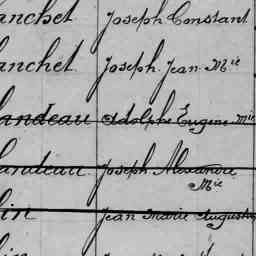 anchet Joseph Constant
anchet Joseph Jean Mie
andeau Adolphe Eugène Mie
andeau Joseph Alexandre
Mie
lin Jean Marie Augustin
lin